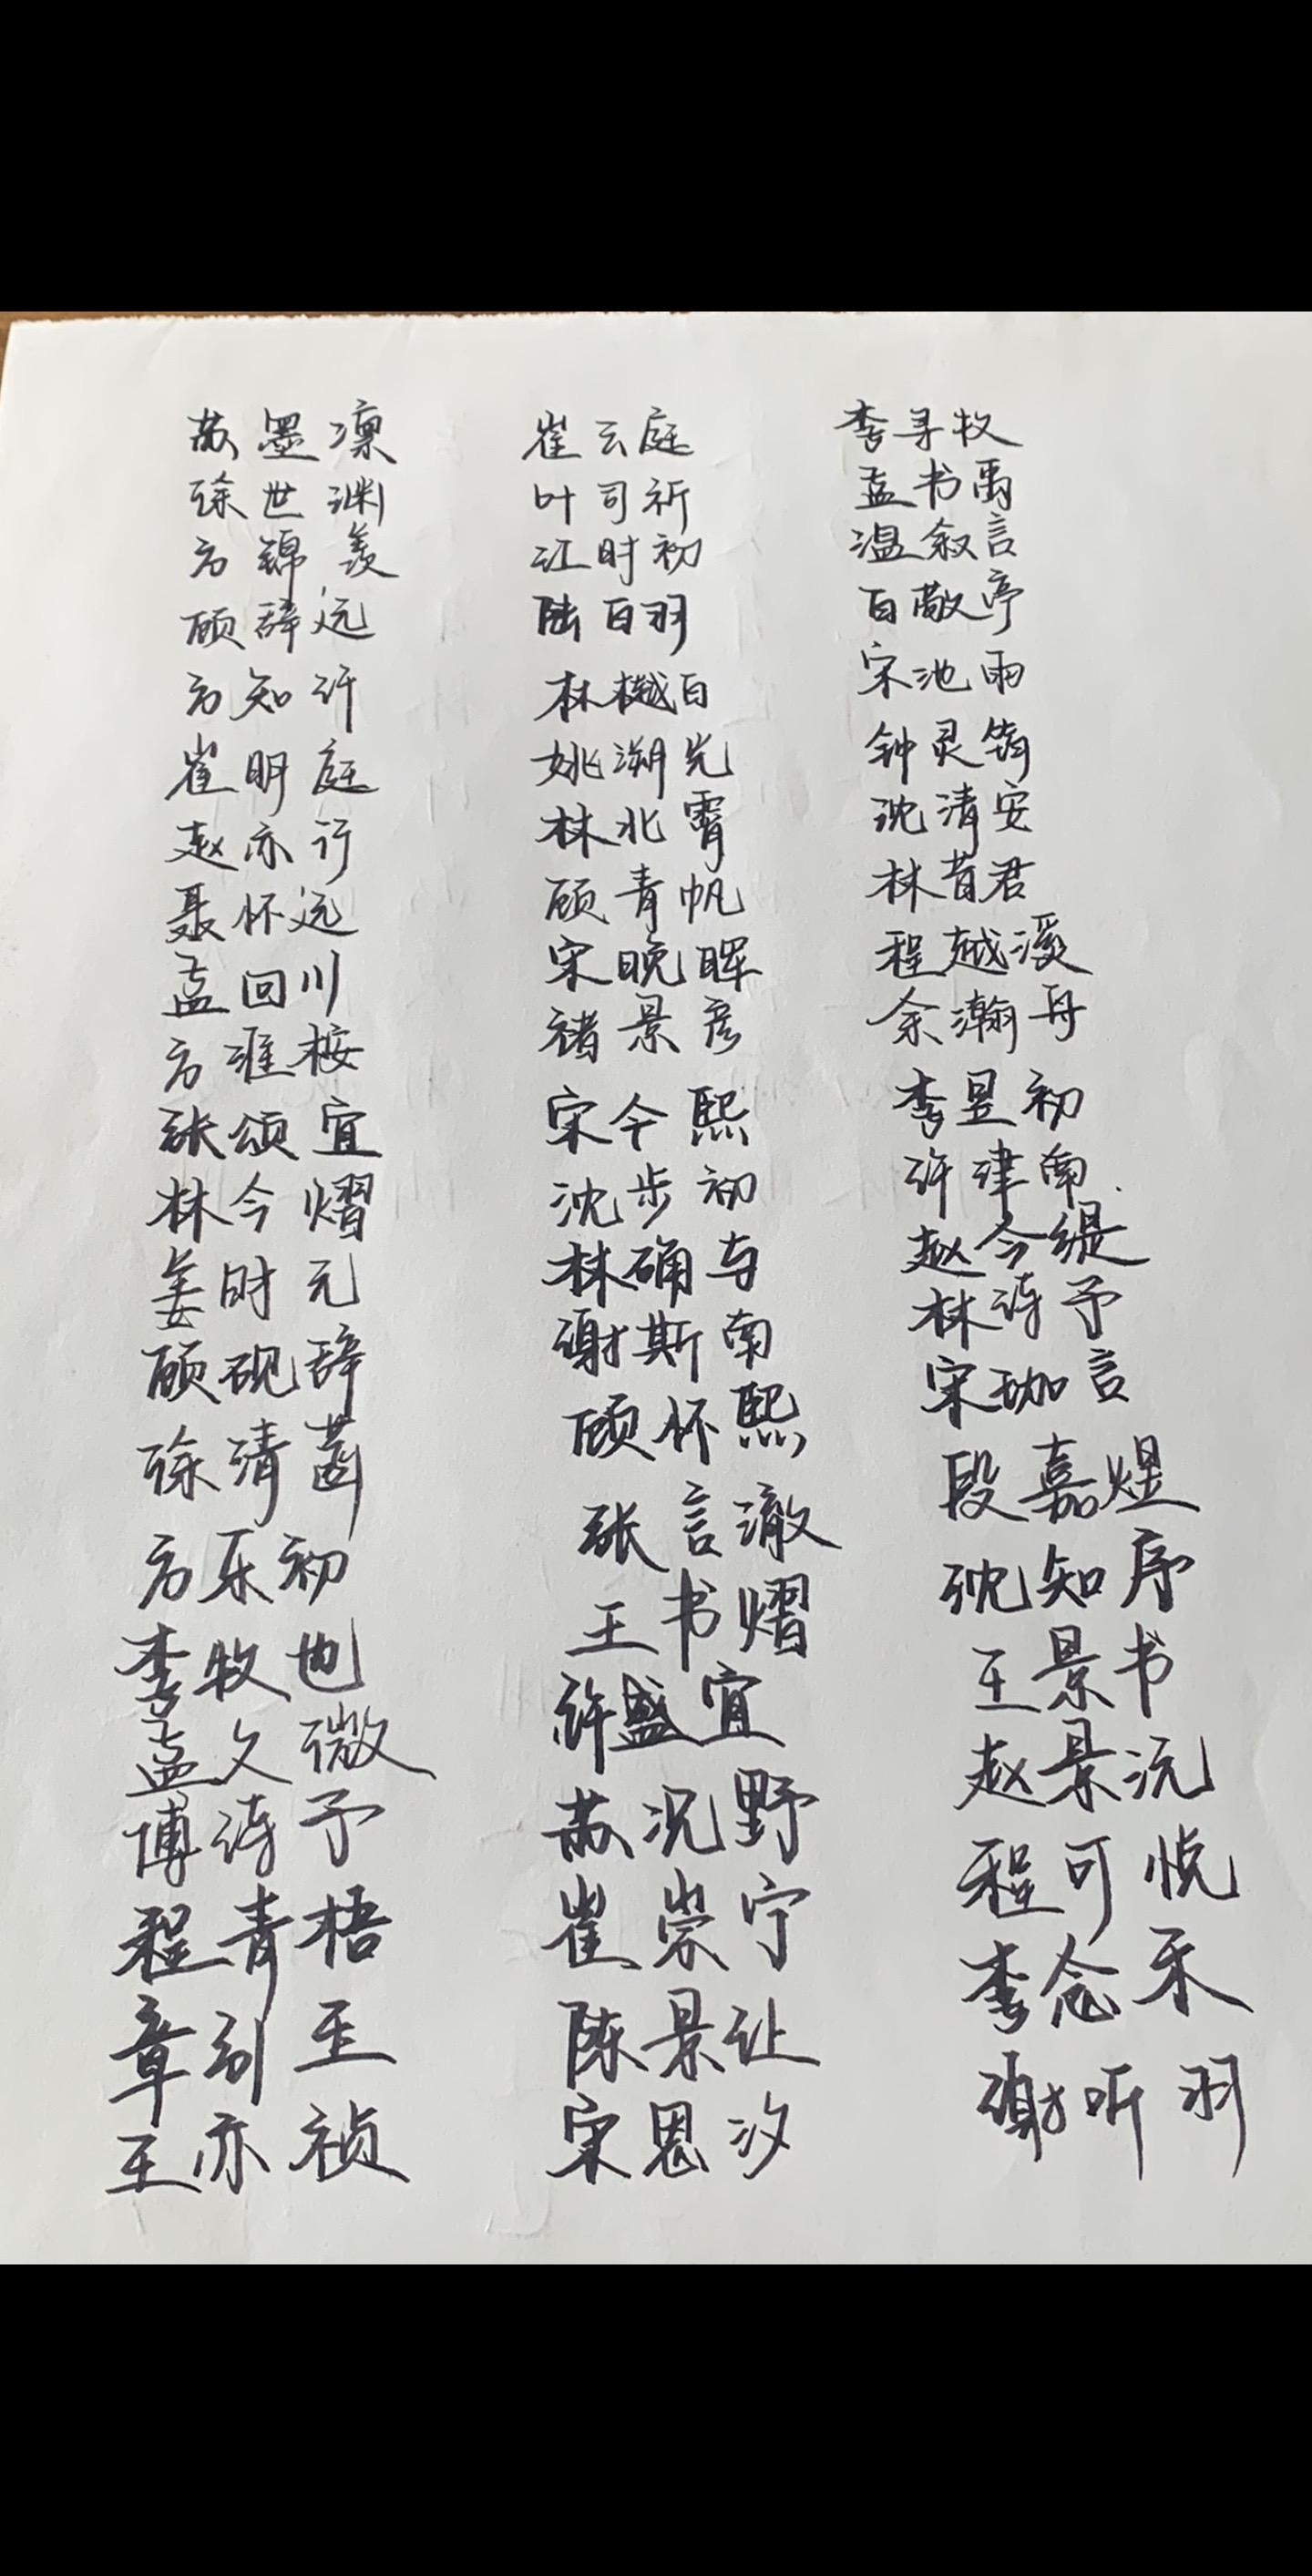 苏墨凛
徐世渊
方锦羡
顾辞远
方知许
崔明庭
赵亦行
聂怀远
孟回川
方淮桉
张颂宜
林今熠
姜时元
顾砚辞
徐清
方乐初
李牧也
孟久微
傅诗予
程青梧
章引玉
王亦祯
崔云庭
叶司祈
江时初
陆白羽
林樾白
姚溯光
林北霄
顾青帆
宋晚晖
褚景彦
宋今熙
沈步初
林确与
谢斯南
顾怀熙
张言澈
王书熠
许盛宜
苏况野
崔崇宁
陈景让
宋恩汐
李寻牧
孟书禹
温叙言
白敬亭
宋池雨
钟灵筠
沈清安
林昔君
程越溪
余瀚舟
李昱初
许津南
赵今缇
林诗予
宋珈言
段嘉煜
沈知序
王景书
赵景沅
程可悦
李念禾
谢听羽